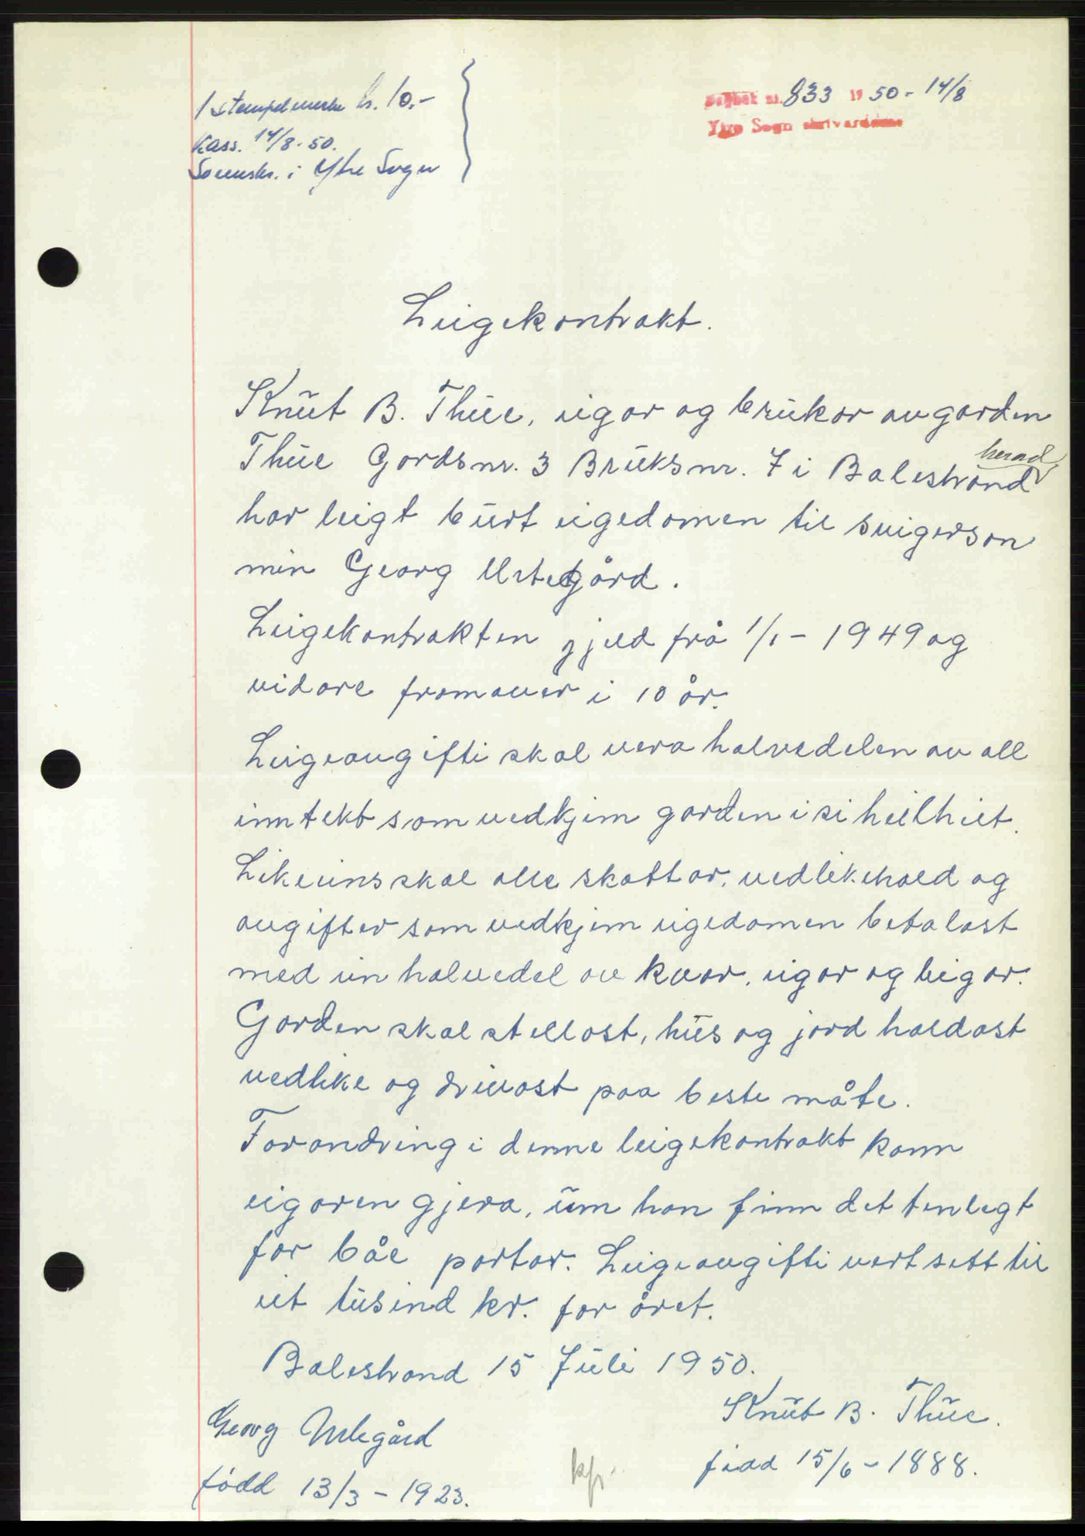 1 stempelmerke kr. 10,-
Kass. 14/8-50.
Sorenskr. i Ytre Sogn
Dagbok nr. 833 1950 - 14/8
Ytre Sogn skrivardøme
Leigekontrakt.
Knut B. Thue, eigar og brukar av garden
Thue Gardsnr. 3 Bruksnr. 7 i Balestrand herad
har leigt burt eigedomen til svigerson
min Georg gård.
Leigekontrakten gjeld frå 1/1 - 1949 og
vidare framover i 10 år.
Leigeavgifti skal vera halvedelen av all
inntekt som vedkjem garden i si heilheit.
Likeeins skal alle skattar, vedlikehald og
avgifter som vedkjem eigedomen betalast
med ein halvedel av kvar, eigar og leigar.
Garden skal stellast, hus og jord haldast
vedlike og drivast paa beste måte.
Forandring i denne leigekontrakt kann
eigaren gjera, um han finn det tenlegt
for båe partar. Leigeavgifti vert sett til
eit tusind kr. for året.
Balestrand 15 Juli 1950.
Knut B. Thue.
fødd 15/6 - 1888.
Georg
fødd 13/3 - 1923.